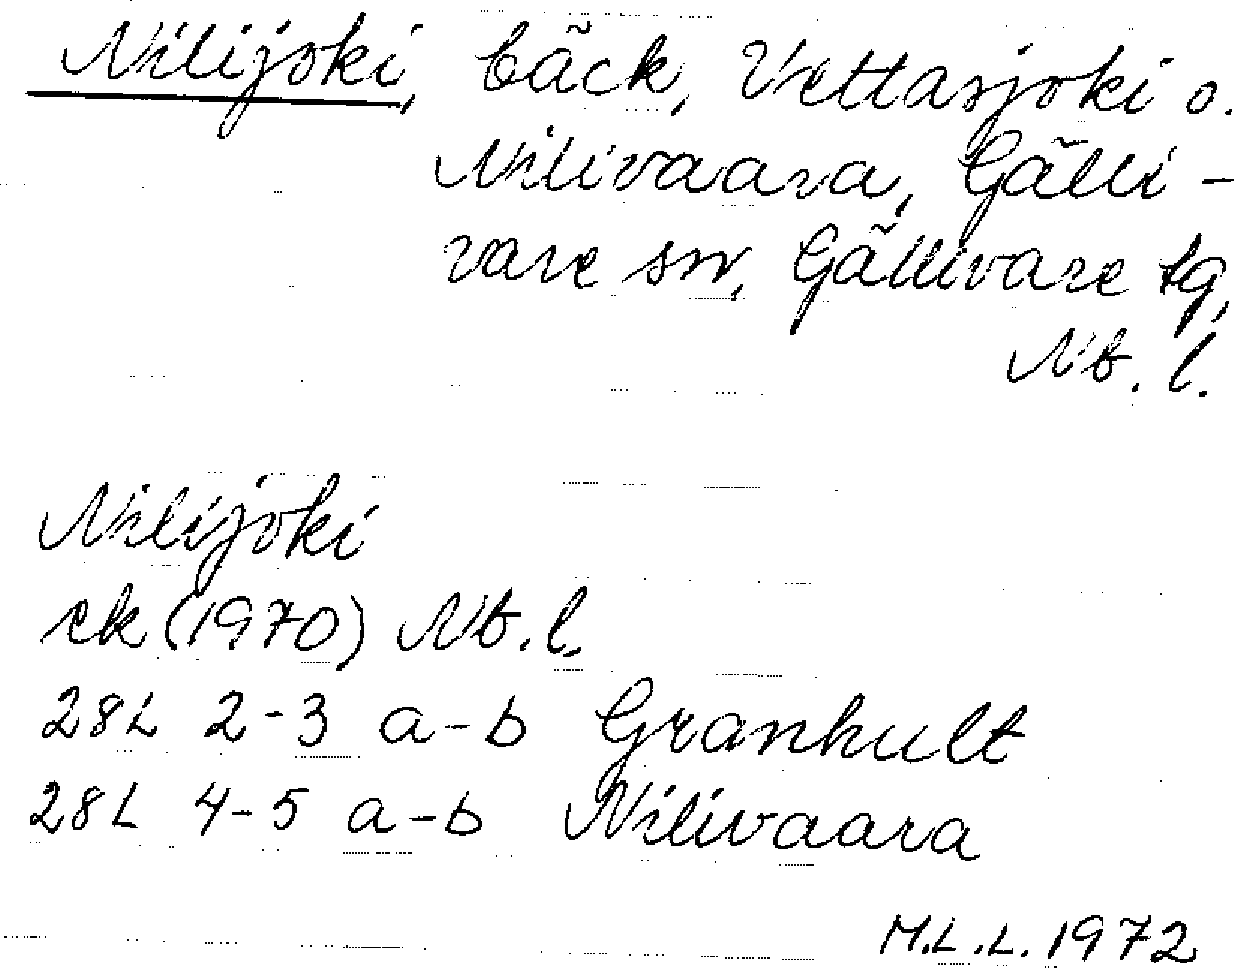 Nilijoki, bäck, Vettasjoki o.
Nilivaara, Gälli-
vare sn, Gällivare tg,
Nb. l.
Nilijoki
ek (1970) Nb. l.
28L 2-3 a-b Granhult
28L 4-5 a-b Nilivaara
M.L.L. 1972